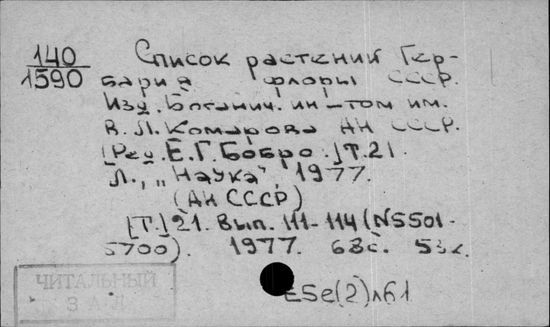 140
1590
Список растений Гер-
бария флоры СССР.
Изд. Ботанич. ин-том им.
В.Л. Комарова АН СССР.
[Ред. Е.Г. Бобро.] Т.21
Л., „Наука", 1977.
(АН СССР)
[Т.] 21. Вып. 111-114 (N5501-
5700). 1977. 68с. 53к.
ЧИТАЛЬНЫЙ
ЗАЛ
Е5е(2)л61